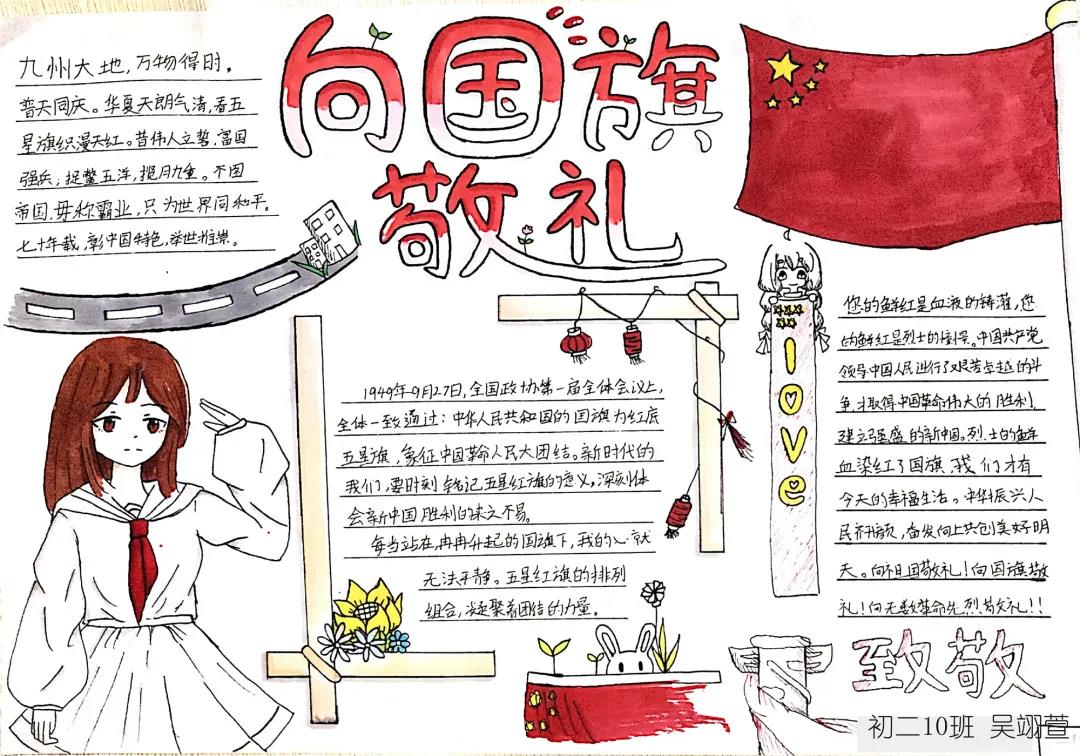 向国旗
敬礼
九州大地,万物得时。
普天同庆。华夏天朗气清,看五
星旗织漫天红。昔伟人立誓,富国
强兵;捉鳖五洋,揽月九重。不图
帝国,毋称霸业,只为世界同和平。
七十年载,彰中国特色,举世推崇。
1949年9月27日,全国政协第一届全体会议上,
全体一致通过:中华人民共和国的国旗为红底
五星旗,象征中国革命人民大团结。新时代的
我们,要时刻牢记五星红旗的意义,深刻体
会新中国胜利的来之不易。
每当站在冉冉升起的国旗下,我的心就
无法平静。五星红旗的排列
组合,凝聚着团结的力量。
love
您的鲜红是血液的铸灌,您
的鲜红是烈士的倩景。中国共产党
领导中国人民进行了艰苦卓越的斗
争,才取得中国革命伟大的胜利,
建立强盛的新中国。烈士的鲜
血染红了国旗,我们才有
今天的幸福生活。中华振兴人
民开颜,奋发向上共创美好明
天。向祖国敬礼!向国旗敬
礼!向无数革命先烈敬礼!!
致敬
初二10班 吴翊萱